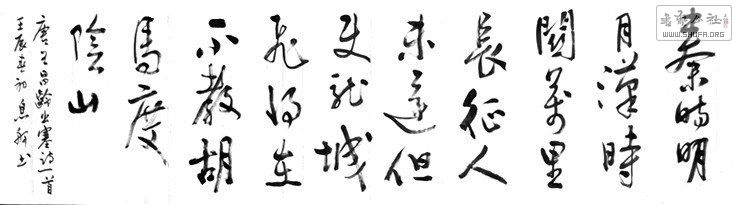 秦時明
月漢時
關萬里
長征人
未還但
使龍城
飛將在
不教胡
馬度
陰山
唐王昌齡出塞詩一首
壬辰初息书
WWW.SHUFA.ORG